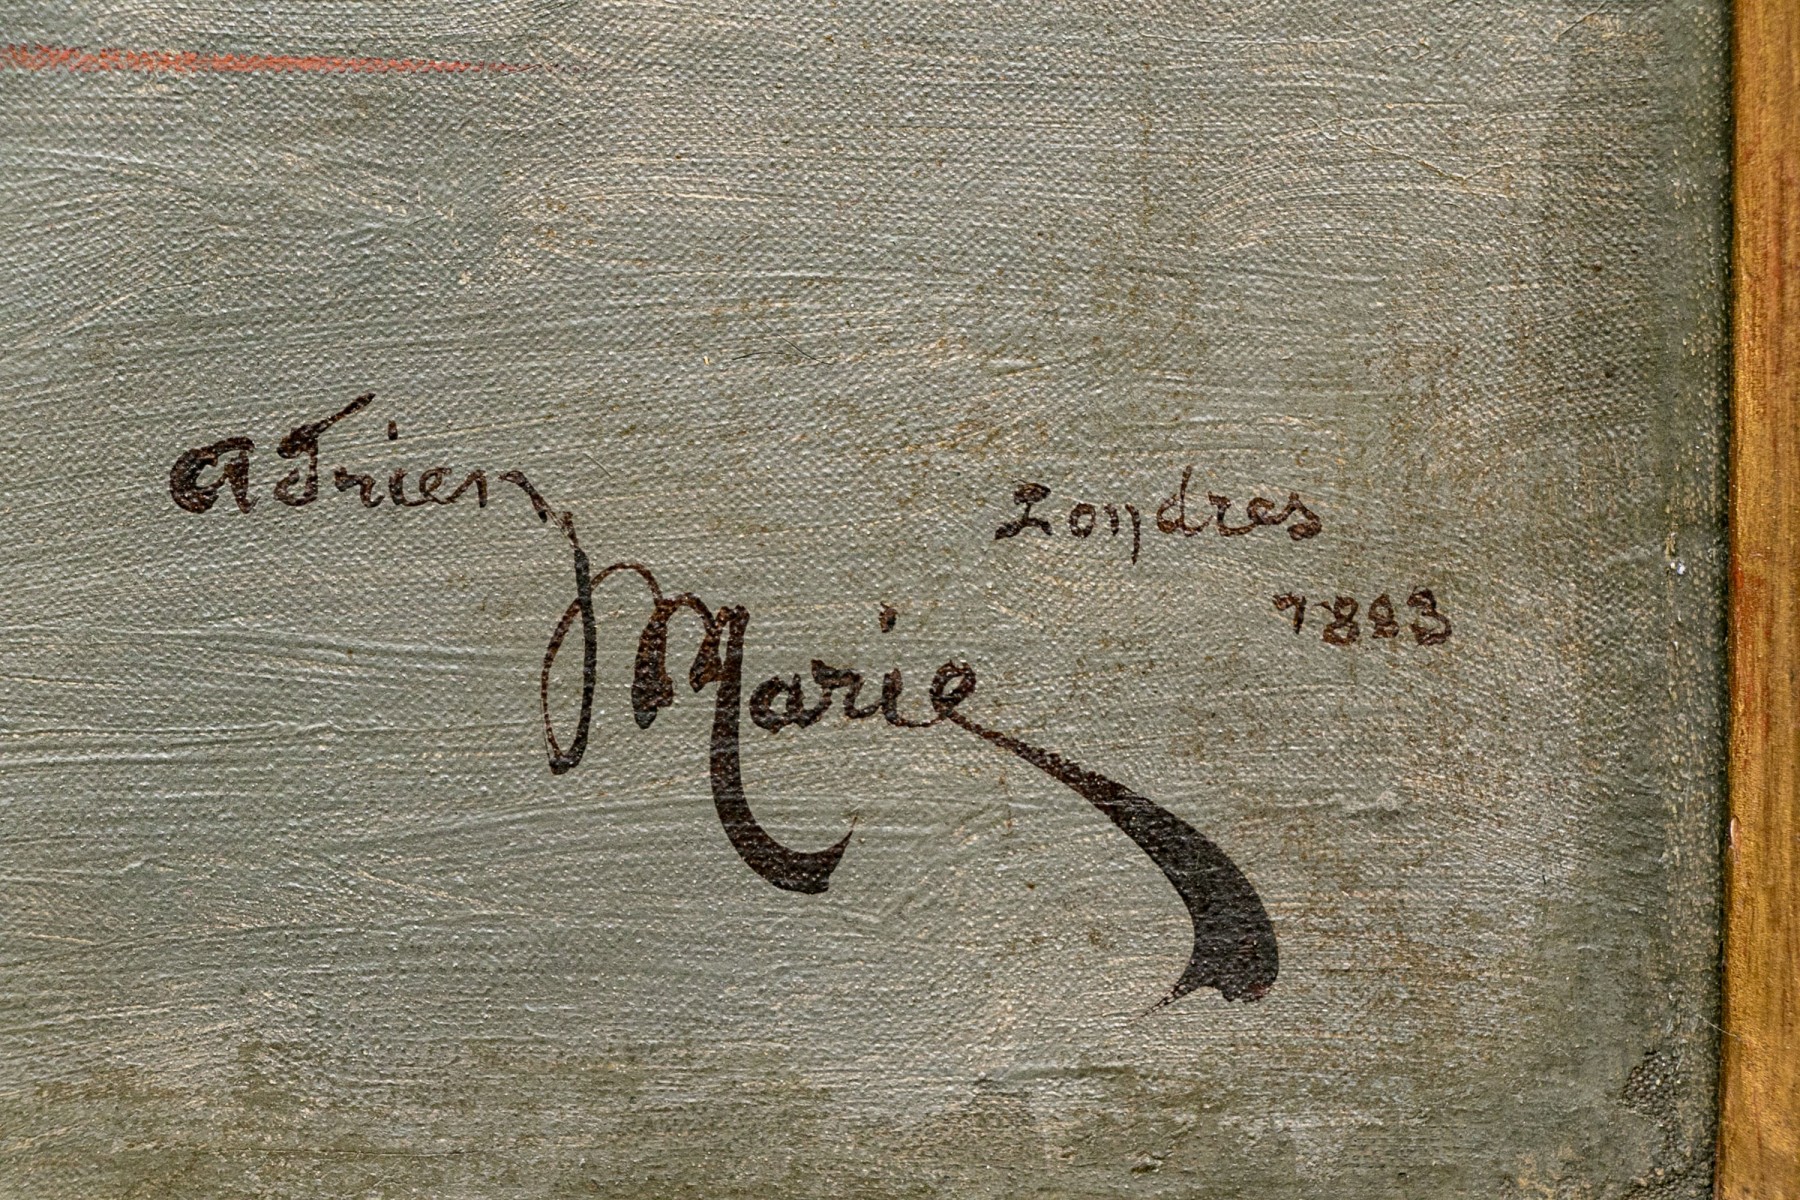 Adrien
Marie
Londres
1883